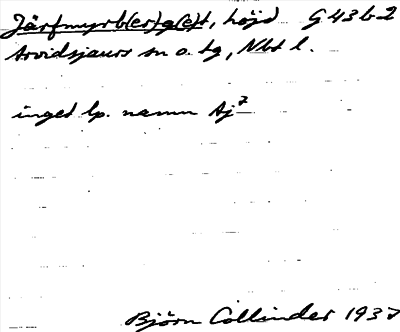 Järfmyrb(er)g(e)t, höjd G 43 b 2
Arvidsjaurs sn o. tg, Nbt l.
inget lp. namn Aj 7
Björn Collinder 1937